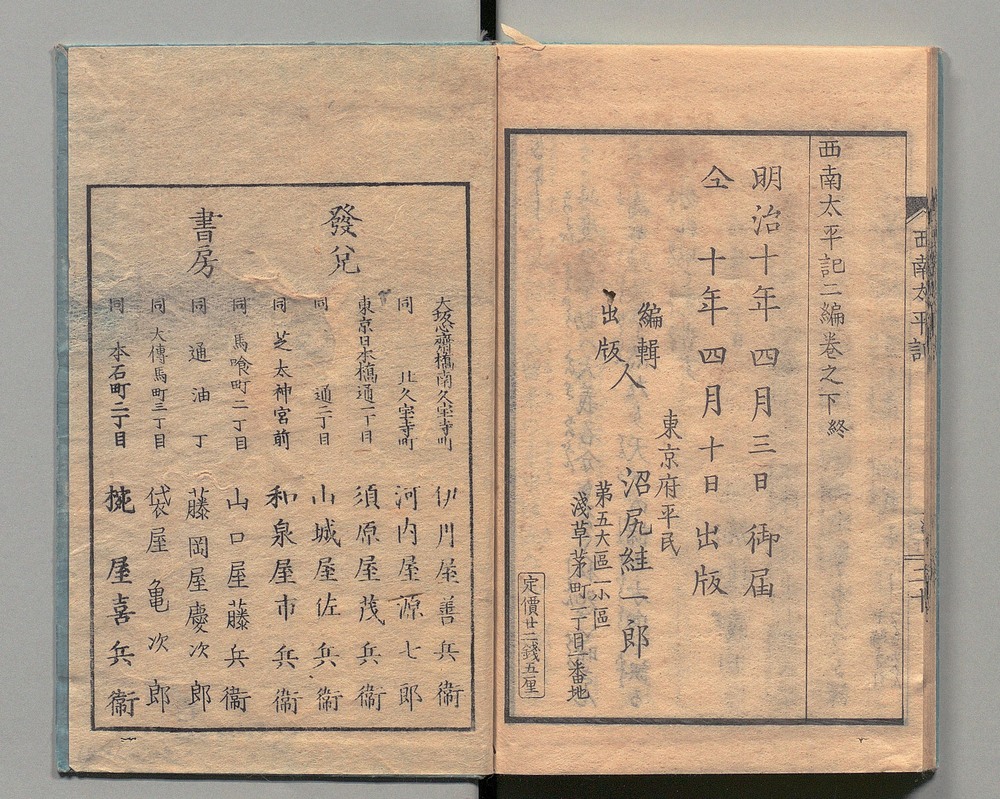 西南太平記二編卷之下終
明治十年四月三日御届
仝十年四月十日出版
編輯
出版
人
東京府平民
沼尻絓一郎
第五大區一小區
淺草茅町一丁目一番地
定價廿二錢五厘
西南太平記
二十
發兌
書房
大坂心齋橋南久宝寺町 伊丹屋善兵衞
同 北久宝寺町 河内屋源七郎
東京日本橋通一丁目 須原屋茂兵衞
同 通二丁目 山城屋佐兵衞
同 芝太神宮前 和泉屋市兵衞
同 馬喰町二丁目 山口屋藤兵衞
同 通油丁 藤岡屋慶次郎
同 大傳馬町三丁目 袋屋亀次郎
同 本石町二丁目 屋喜兵衞